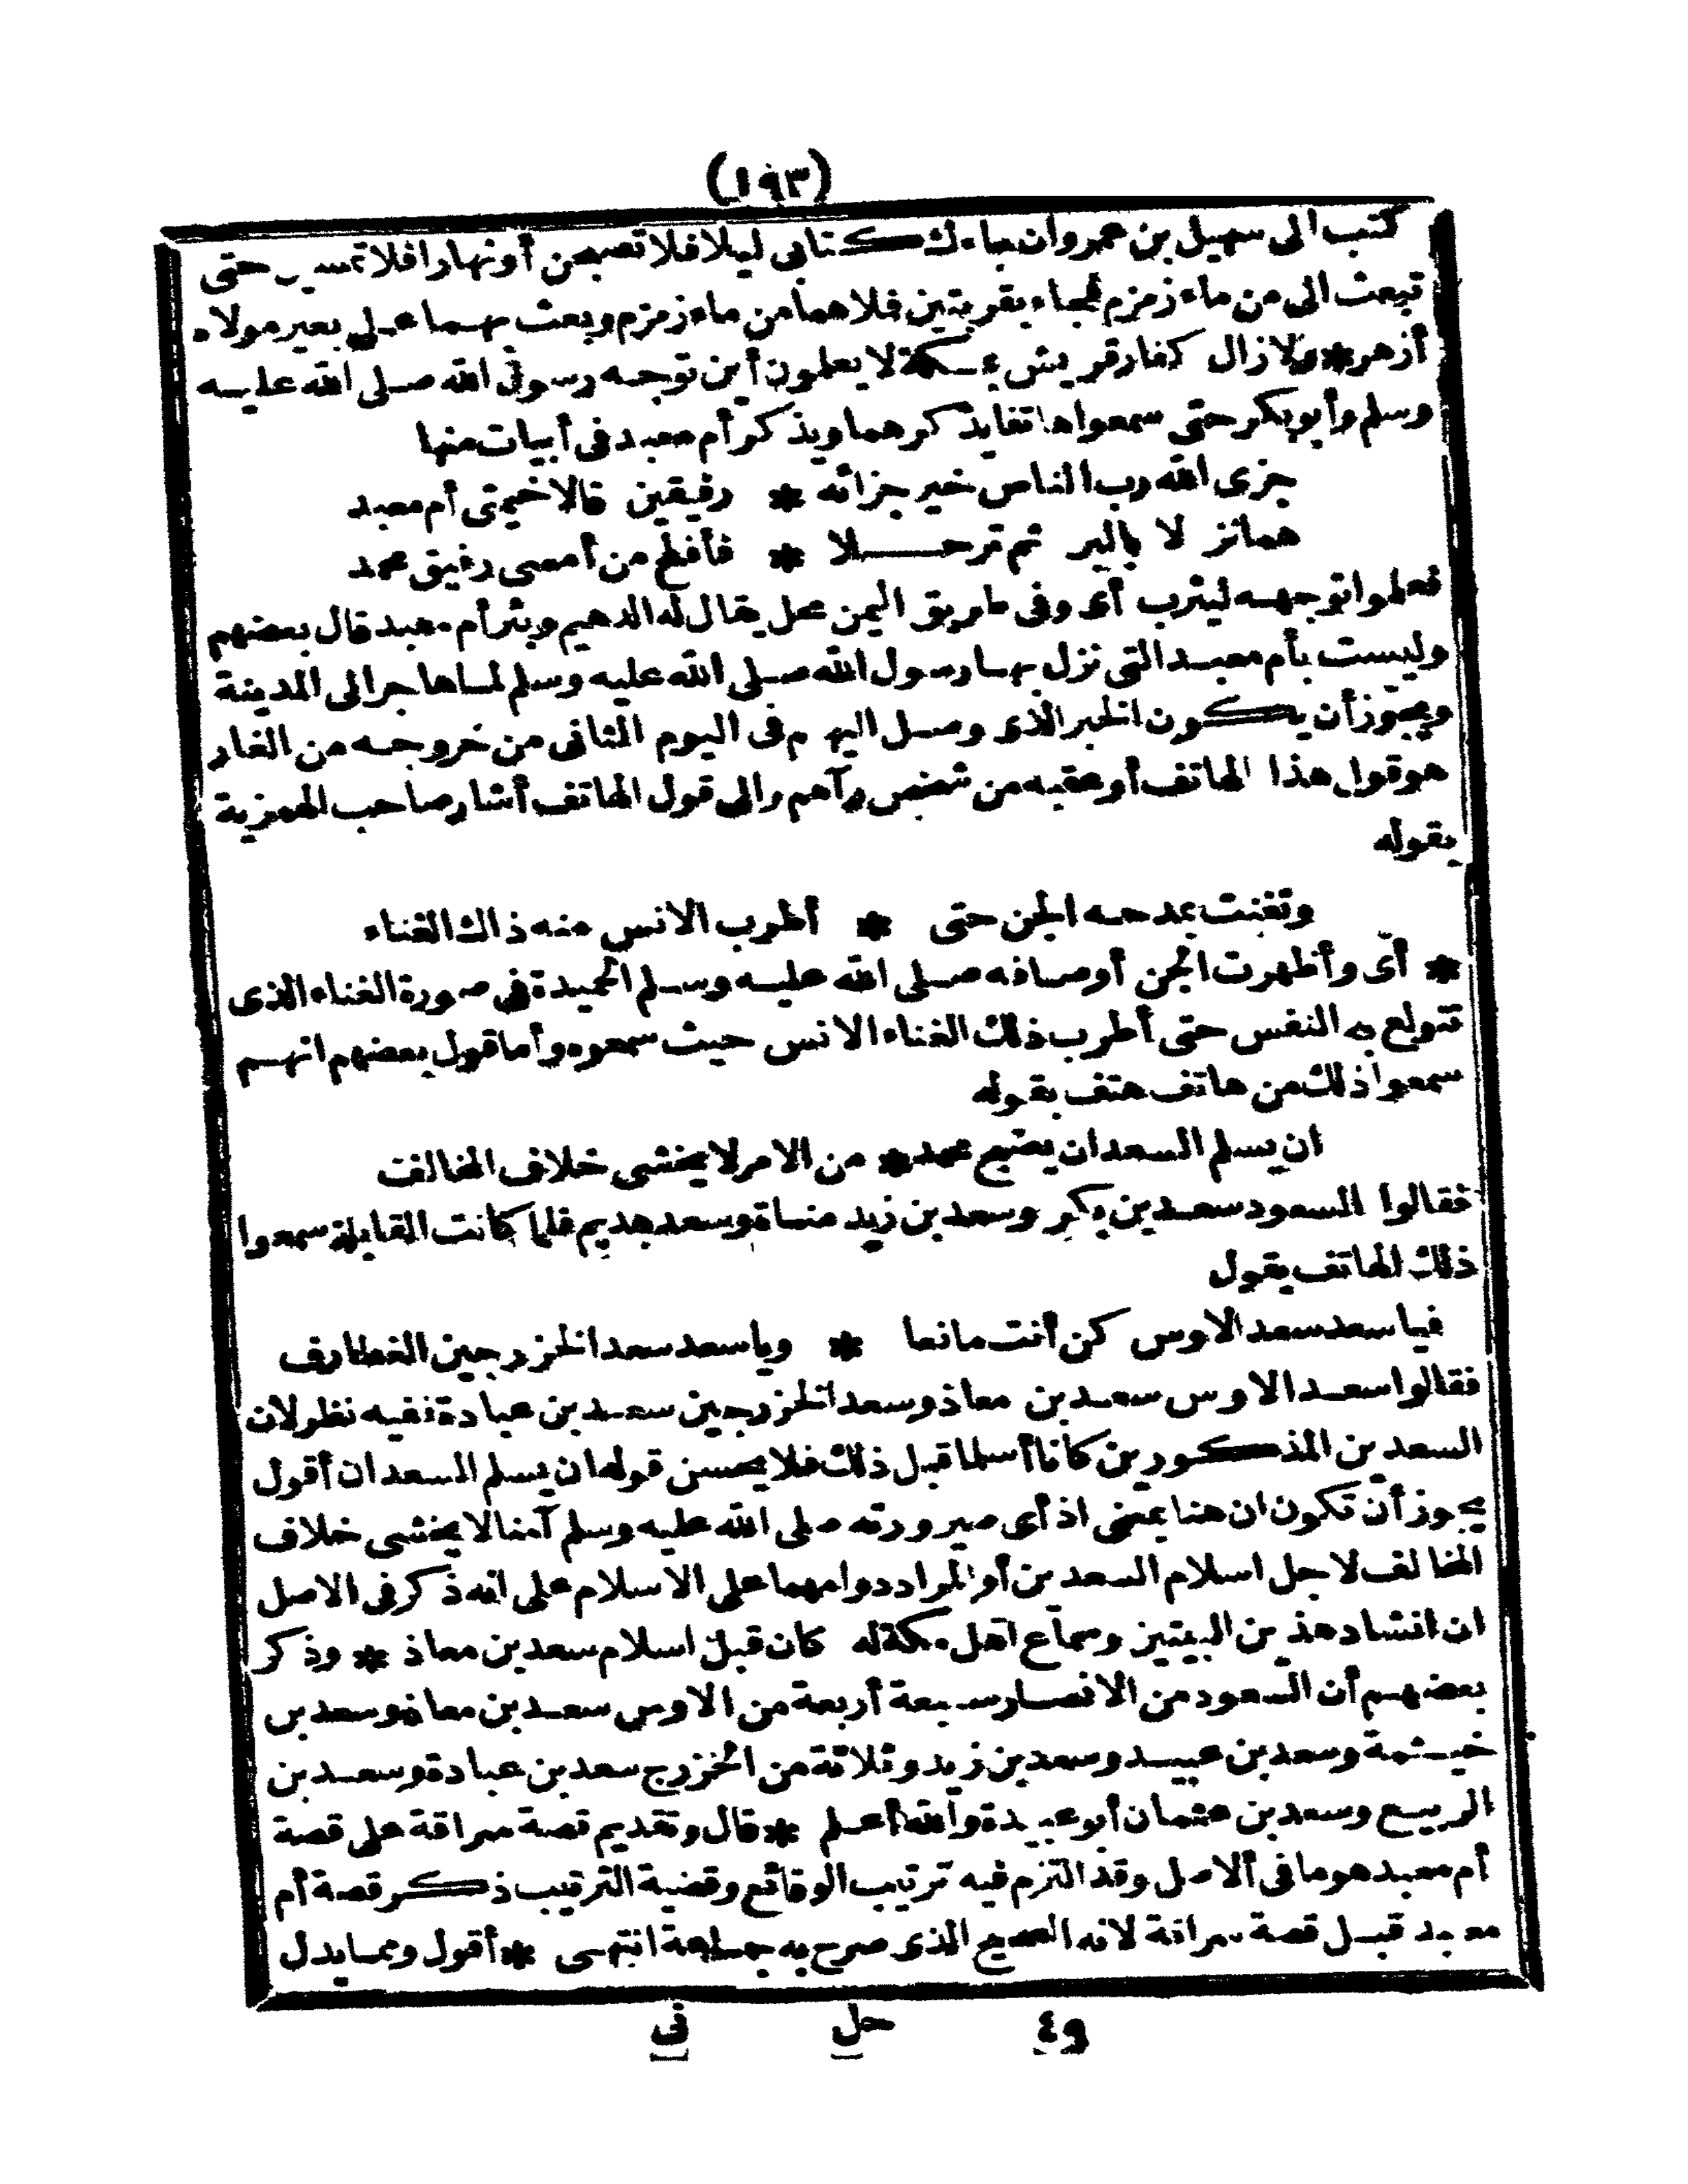 (١٩٣)
كتب الى سهيل بن عمرو ان جاءك كتابى ليلا فلا تصبحن أو نهارا فلا تمسين حتى
تبعث الى من ماء زمزم فجاء بقربتين فلاهما من ماء زمزم وبعث بهما على بعير مولاه
أزهر * ولا زال كفار قريش بمكة لا يعلمون أين توجه رسول الله صلى الله عليه
وسلم وأبو بكر حتى سمعوا هاتفا يذكرهما ويذكر أم معبد فى أبيات منها
جزى الله رب الناس خير جزائه * رفيقين قالا خيمتى أم معبد
هما نزلا بالبر ثم ترحلا * فأفلح من أمسى رفيق محمد
فعلموا توجهه ليثرب أى وفى طريق اليمن محل يقال له الدهيم وبئر أم معبد قال بعضهم
وليست بأم معبد التى نزل بها رسول الله صلى الله عليه وسلم لما هاجر الى المدينة
ويجوز أن يكون الخبر الذى وصل اليهم فى اليوم الثانى من خروجه من الغار
هو قول هذا الهاتف أو عقبه من شخص رآهم والى قول الهاتف أشار صاحب الهمزية
بقوله
وتغنت بمدحه الجن حتى * أطرب الانس منه ذاك الغناء
* أى وأظهرت الجن أوصافه صلى الله عليه وسلم الحميدة فى صورة الغناء الذى
تتولع به النفس حتى أطرب ذلك الغناء الانس حيث سمعوه وأما قول بعضهم انهم
سمعوا ذلك من هاتف هتف بقوله
ان يسلم السعدان يصبح محمد * من الامر لا يخشى خلاف المخالف
فقالوا السعود سعد بن بكر وسعد بن زيد مناة وسعد هديم فلما كانت القابلة سمعوا
ذلك الهاتف يقول
فيا سعد سعد الاوس كن أنت مانعا * ويا سعد سعد الخزرجين الغطارف
فقالوا سعد الاوس سعد بن معاذ وسعد الخزرجين سعد بن عبادة ففيه نظر لان
السعدين المذكورين كانا أسلما قبل ذلك فلا يحسن قوله ان يسلم السعدان أقول
يجوز أن تكون ان هنا بمعنى اذ أى صيرورته صلى الله عليه وسلم آمنا لا يخشى خلاف
المخالف لاجل اسلام السعدين أو المراد دوامهما على الاسلام على انه ذكر فى الاصل
ان انشاد هذين البيتين وسماع أهل مكة له كان قبل اسلام سعد بن معاذ * وذكر
بعضهم أن السعود من الانصار سبعة أربعة من الاوس سعد بن معاذ وسعد بن
خيثمة وسعد بن عبيد وسعد بن زيد وثلاثة من الخزرج سعد بن عبادة وسعد بن
الربيع وسعد بن عثمان أبو عبيدة والله أعلم * قال وتقديم قصة سراقة على قصة
أم معبد هو ما فى الاصل وقد التزم فيه ترتيب الوقائع وقضية الترتيب ذكر قصة أم
معبد قبل قصة سراقة لانه الصحيح الذى صرح به جماعة انتهى * أقول ومما يدل
٤٩ حل نى